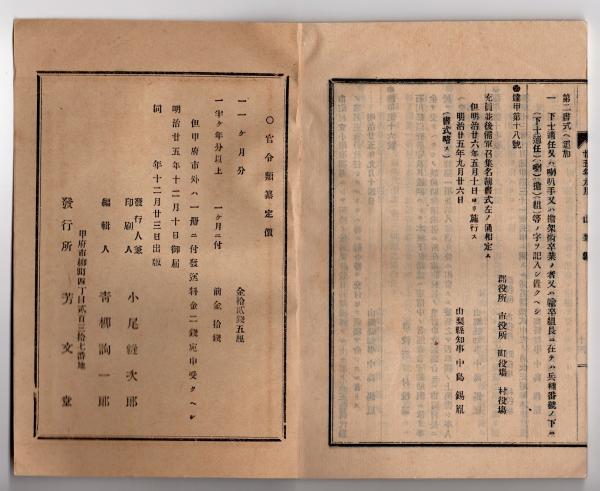 第二書式ヘ追加
一 下士適任又ハ喇叭手又ハ擔架術卒業ノ者又ハ輸卒組長ニ在テハ兵種番號ノ下ニ
(下士適任)(喇)(擔)(組)等ノ字ヲ記入シ置クヘシ
達甲第十八號
郡役所 市役所 町役塲 村役塲
充員並後備軍召集名簿書式左ノ通相定ム
但明治廿六年五月十日ヨリ施行ス
明治廿五年九月廿六日
山梨縣知事 中島錫胤
(書式略ス)
〇官令類纂定價
一 一ヶ月分 金拾貳錢五厘
一 半ヶ年分以上 一ヶ月ニ付 前金拾錢
但甲府市外ハ一冊ニ付發送料金二錢宛申受クヘシ
明治廿五年十二月十日御届
同 年十二月廿三日出版
發行人兼
印刷人 小尾 次郎
編輯人 青柳詢一郎
甲府市柳町四丁目貳百三拾七番地
發行所 芳文堂